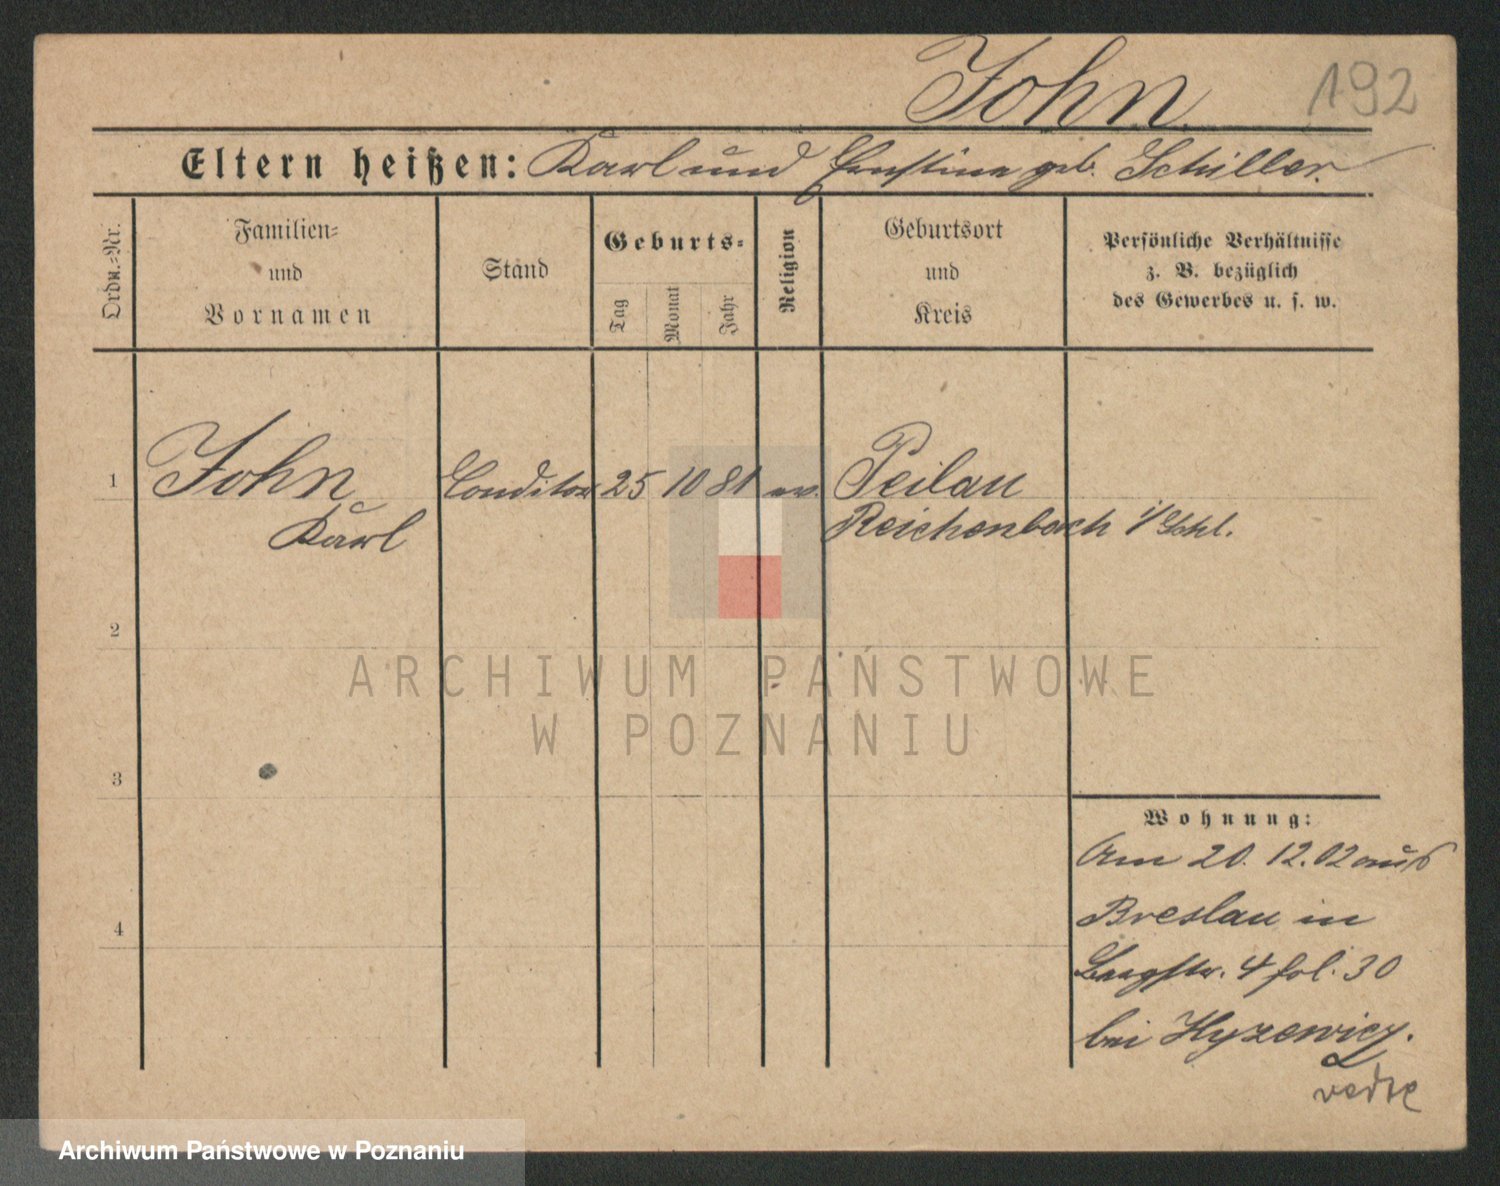 John
192
Eltern heißen: Karl und Ernstine geb. Schiller.
Ordn.-Nr.
Familien-
und
Vornamen
Stand
Geburts-
Tag
Monat
Jahr
Religion
Geburtsort
und
Kreis
Persönliche Verhältnisse
z. B. bezüglich
des Gewerbes u. s. w.
1
John
Karl
Conditor
25 10 81
ev.
Peilau
Reichenbach i/Schl.
2
ARCHIWUM PAŃSTWOWE
W POZNANIU
3
4
Wohnung:
Am 20. 12. 02 aus
Breslau in
4 fol. 30
bei Hyzewicz.
Archiwum Państwowe w Poznaniu